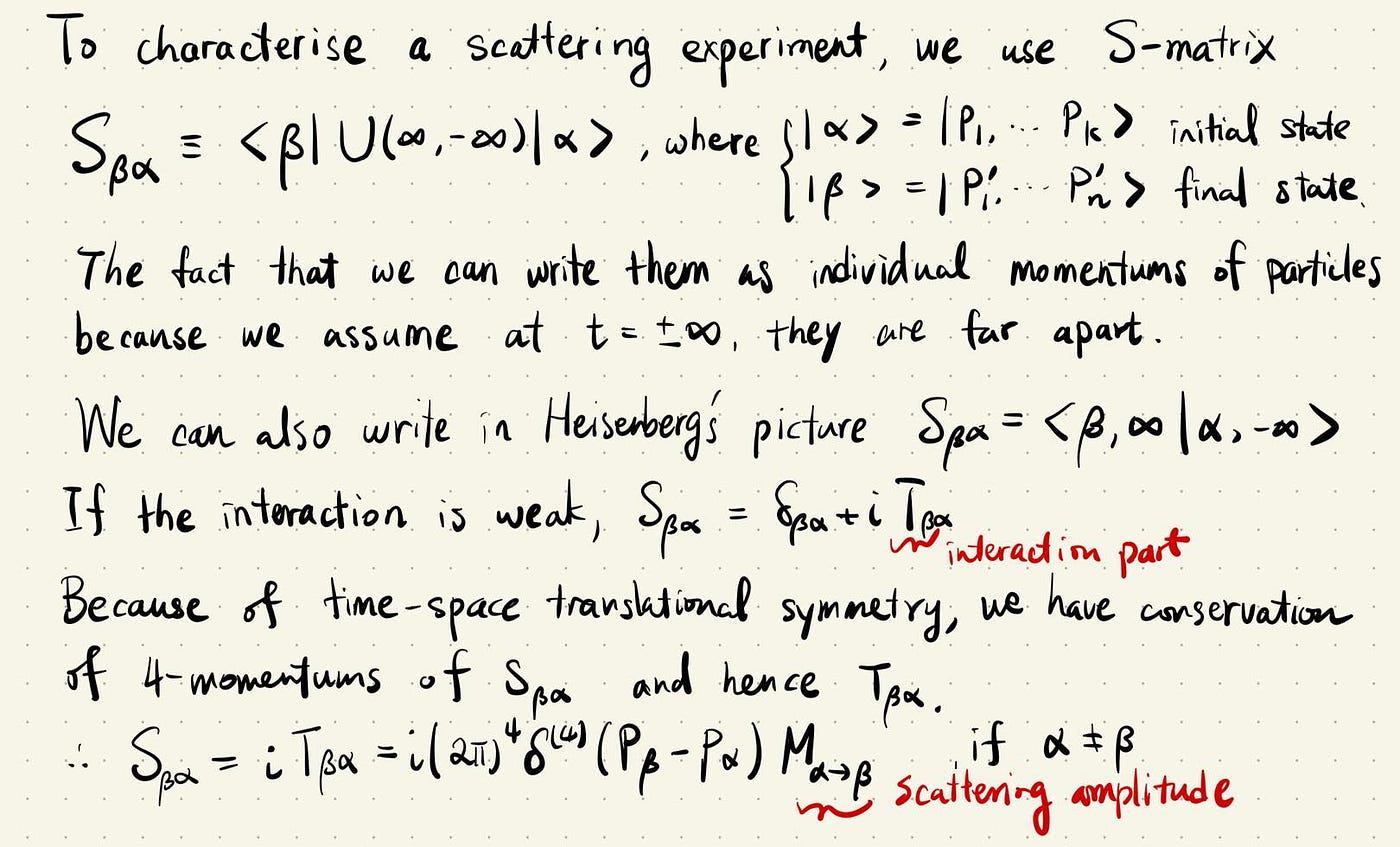 To characterise a scattering experiment, we use S-matrix
S_βα ≡ <β| U(∞,-∞)|α> , where { |α> = |P₁, ⋯ P_k> initial state
|β > = |P₁′, ⋯ P′_n> final state.
The fact that we can write them as individual momentums of particles
because we assume at t = ±∞, they are far apart.
We can also write in Heisenberg's picture S_βα = <β, ∞ | α, -∞>
If the interaction is weak, S_βα = δ_βα + i T_βα
interaction part
Because of time-space translational symmetry, we have conservation
of 4-momentums of S_βα and hence T_βα.
∴ S_βα = i T_βα = i(2π)⁴ δ⁽⁴⁾ (P_β - P_α) M_α→β , if α ≠ β
scattering amplitude